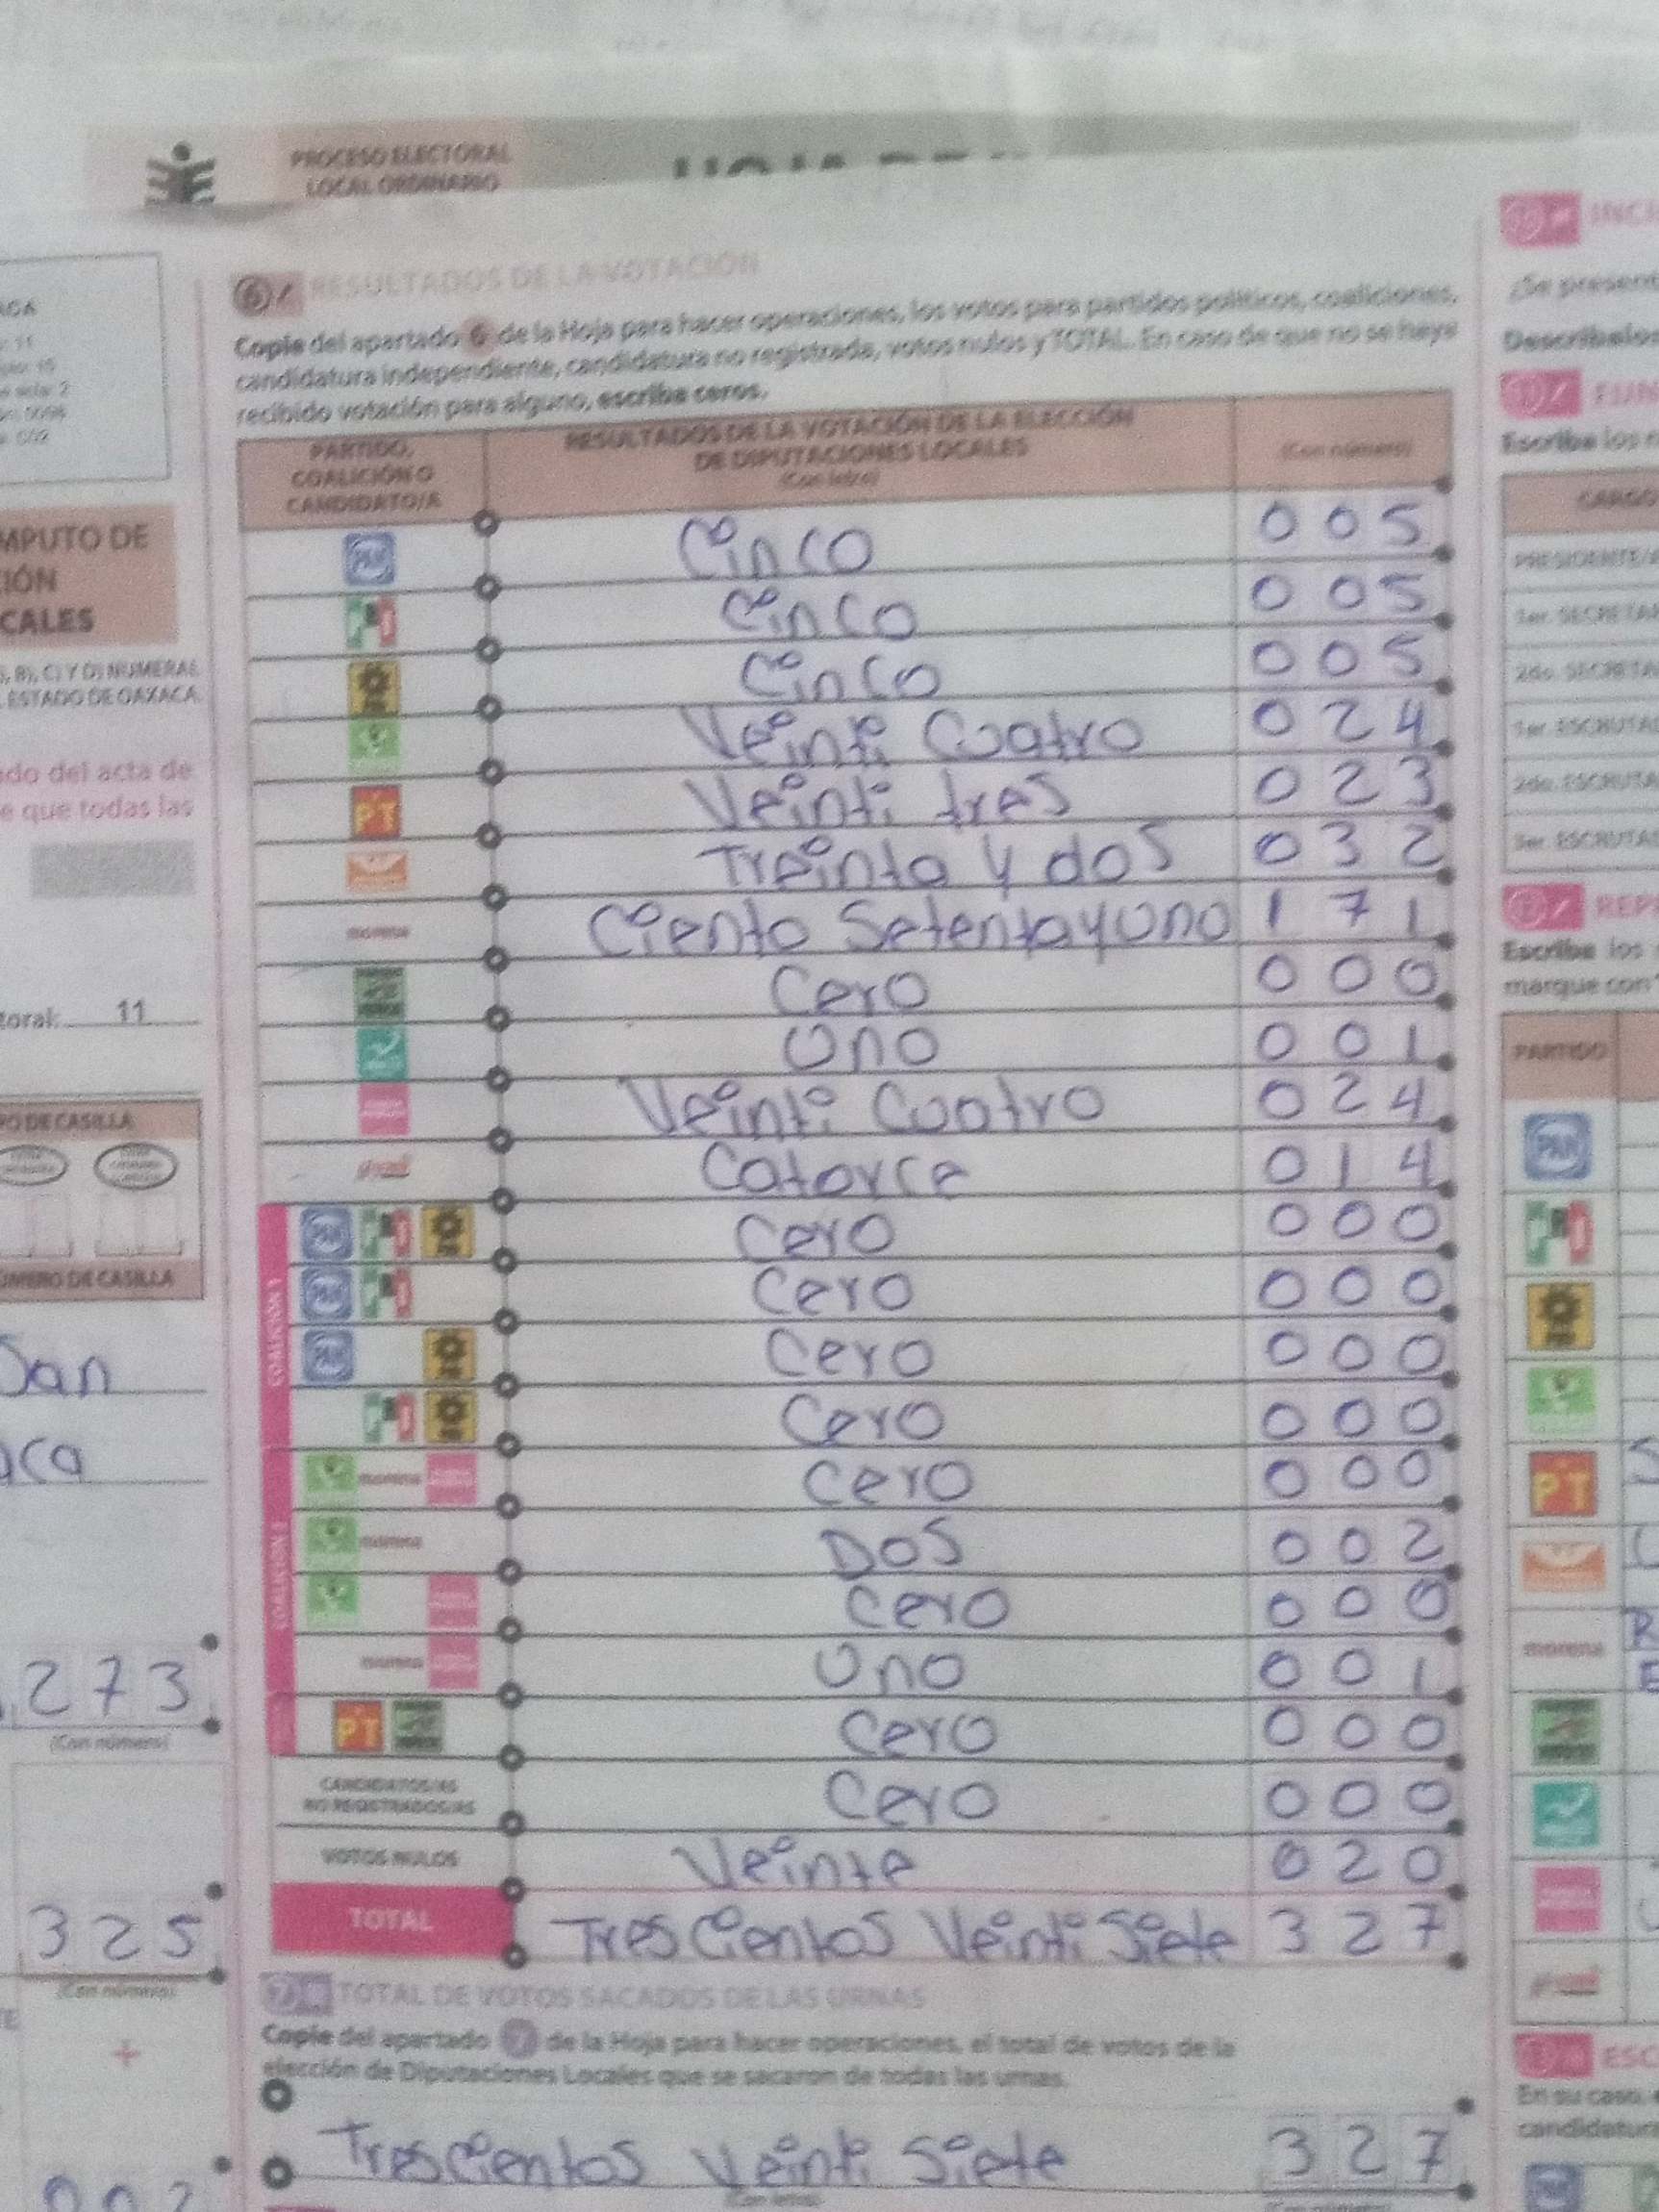 PROCESO ELECTORAL
LOCAL ORDINARIO
6 RESULTADOS DE LA VOTACIÓN
Copie del apartado 6 de la Hoja para hacer operaciones, los votos para partidos políticos, coaliciones,
candidatura independiente, candidatura no registrada, votos nulos y TOTAL. En caso de que no se haya
recibido votación para alguno, escriba ceros.
PARTIDO, COALICIÓN O CANDIDATO/A
RESULTADOS DE LA VOTACIÓN DE LA ELECCIÓN
DE DIPUTACIONES LOCALES
(Con letra)
(Con número)
PAN Cinco 005
PRI Cinco 005
Cinco 005
Veinti Cuatro 024
PT Veinti tres 023
Treinta y dos 032
morena Ciento Setenta y Uno 171
Cero 000
Uno 001
Veinti Cuatro 024
Catorce 014
COALICIÓN 1
PAN PRI Cero 000
PAN PRI Cero 000
PAN Cero 000
PRI Cero 000
COALICIÓN 2
morena Cero 000
morena Dos 002
Cero 000
morena Uno 001
PT Cero 000
CANDIDATOS/AS
NO REGISTRADOS/AS Cero 000
VOTOS NULOS Veinte 020
TOTAL Tres Cientos Veinti Siete 327
7 TOTAL DE VOTOS SACADOS DE LAS URNAS
Copie del apartado 7 de la Hoja para hacer operaciones, el total de votos de la
elección de Diputaciones Locales que se sacaron de todas las urnas.
Trescientos Veinti Siete 327
MPUTO DE
IÓN
CALES
, B), C) Y D) NUMERAL
ESTADO DE OAXACA
do del acta de
e que todas las
toral: 11
O DE CASILLA
ÚMERO DE CASILLA
San
aca
273
(Con número)
325
(Con número)
+
002
INCI
¿Se present
Descríbalos
FUN
Escriba los n
CARGO
PRESIDENTE/A
1er. SECRETAR
2do. SECRETA
1er. ESCRUTAD
2do. ESCRUTA
3er. ESCRUTAD
REPR
Escriba los
marque con
PARTIDO
PAN
PRI
PT
morena
ESC
En su caso,
candidatura